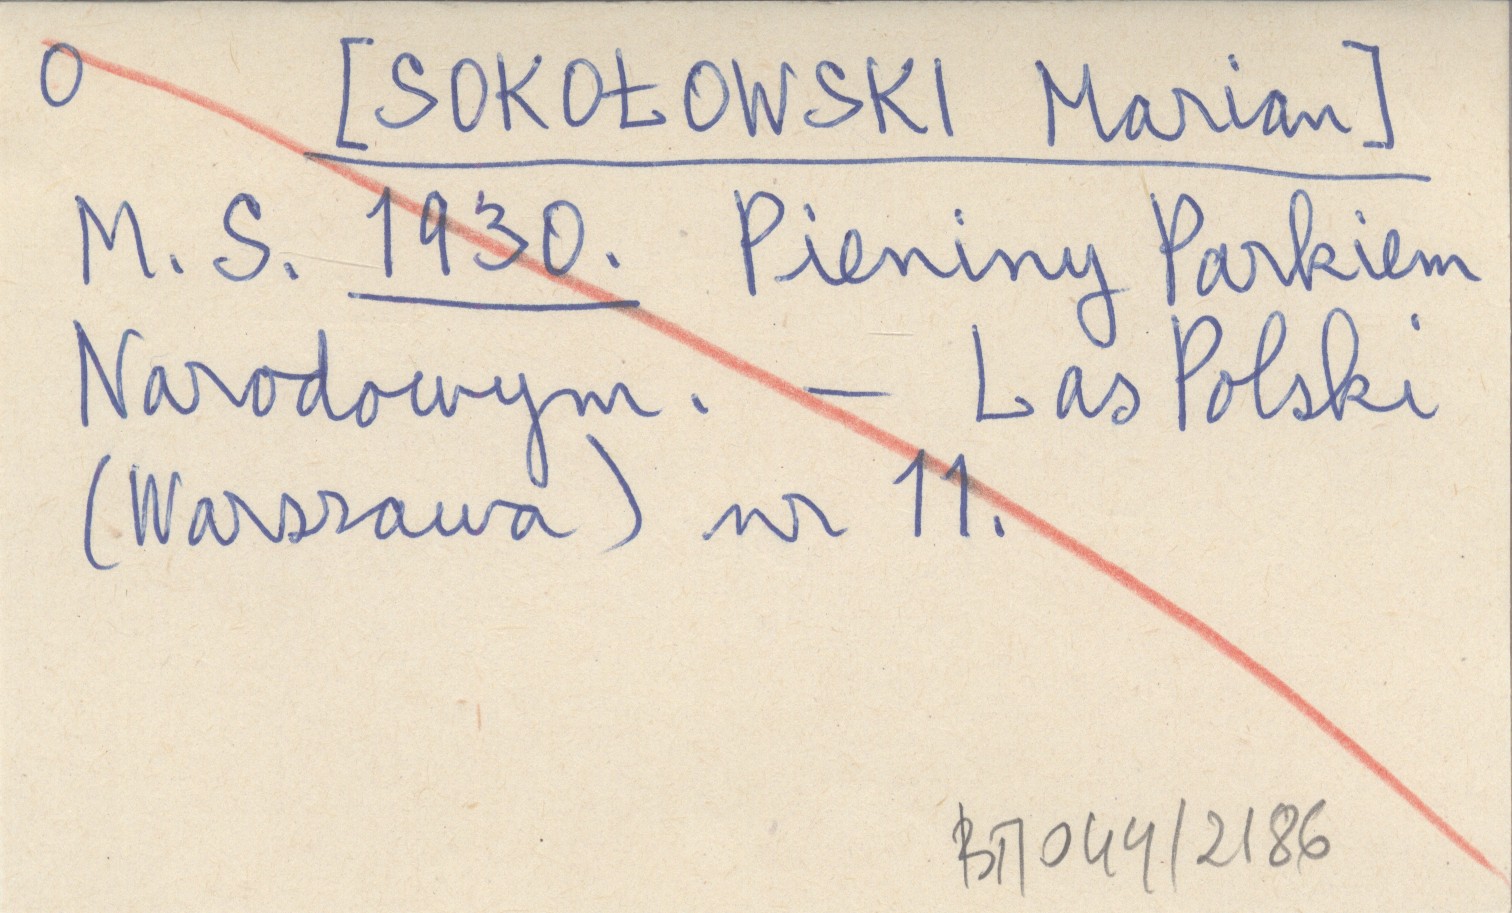 O [SOKOŁOWSKI Marian]
M. S. 1930. Pieniny Parkiem
Narodowym. — Las Polski
(Warszawa) nr 11.
044/2186